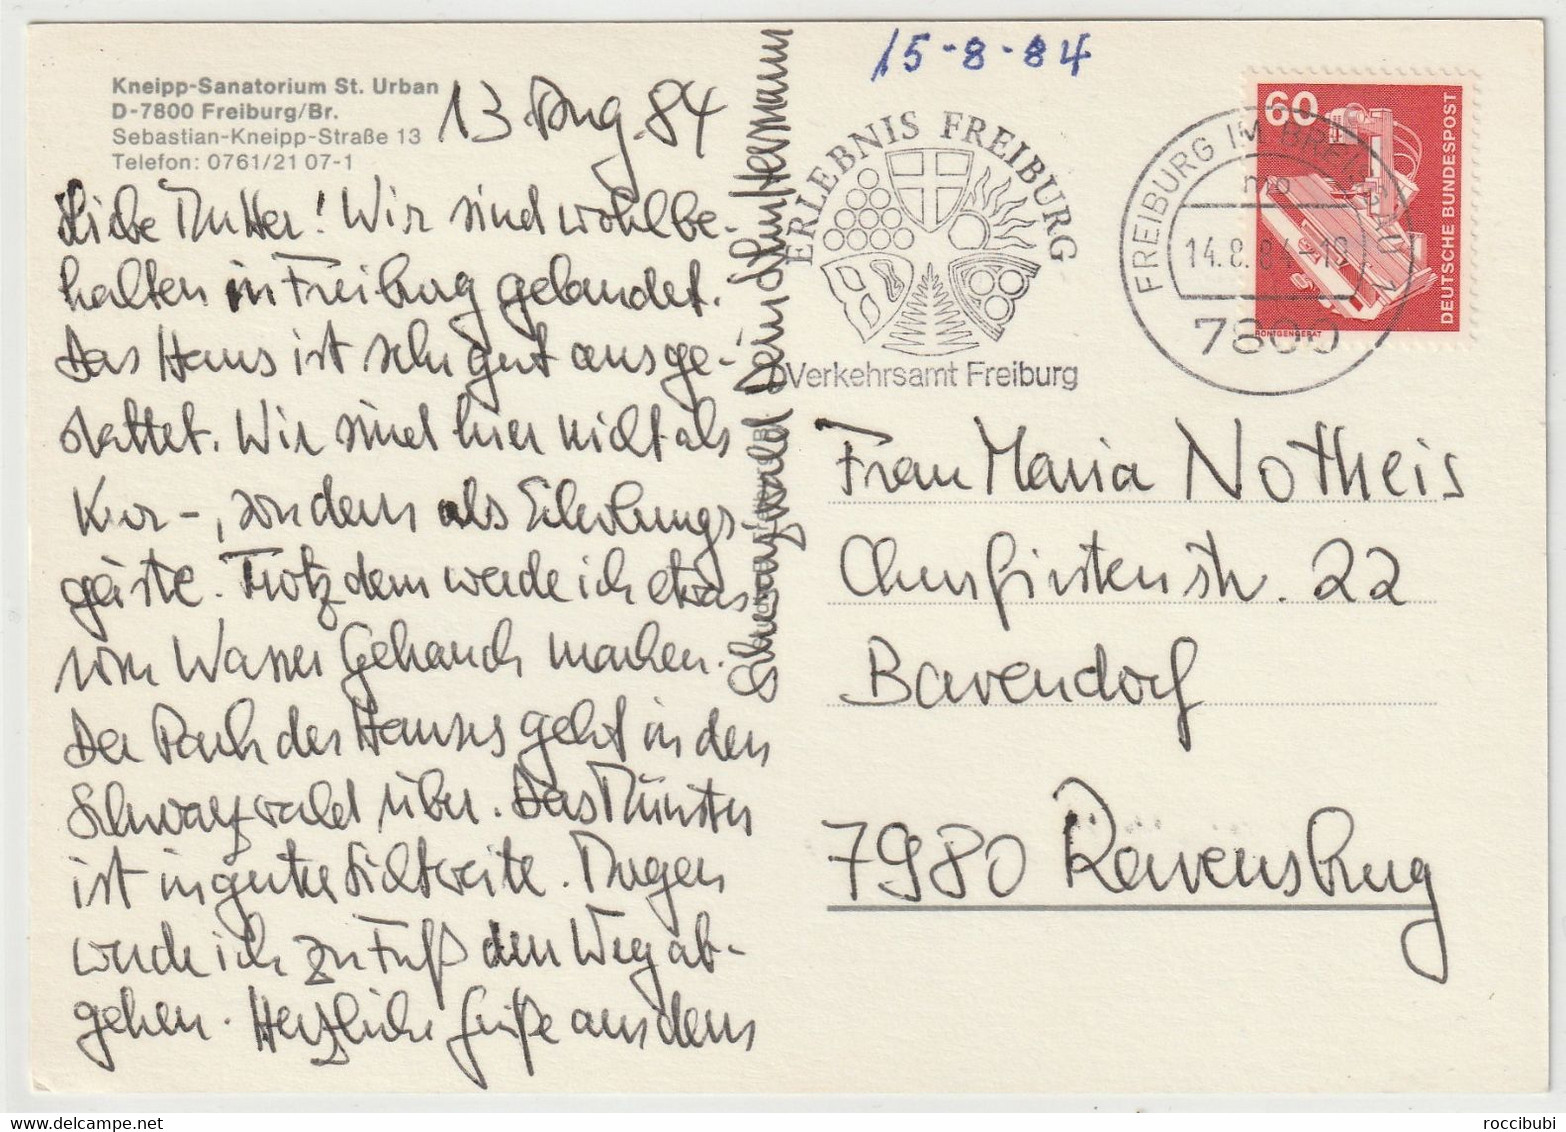 Kneipp-Sanatorium St. Urban
D-7800 Freiburg/Br.
Sebastian-Kneipp-Straße 13
Telefon: 0761/21 07-1
13. Aug. 84
Liebe Mutter! Wir sind wohlbe-
halten in Freiburg gelandet.
Das Haus ist sehr gut ausge-
stattet. Wir sind hier nicht als
Kur-, sondern als Erholungs-
gäste. Trotzdem werde ich etwas
vom Wasser Gebrauch machen.
Der Park des Hauses geht in den
Schwarzwald über. Das Münster
ist in guter Sichtweite. Morgen
werde ich zu Fuß den Weg ab-
gehen. Herzliche Grüße aus dem
Schwarzwald Dein Sohn Hermann
15-8-84
ERLEBNIS FREIBURG
Verkehrsamt Freiburg
FREIBURG IM BREISGAU
mo
14.8.84-19
7800
60
DEUTSCHE BUNDESPOST
RÖNTGENGERÄT
Frau Maria Notheis
Churfirstenstr. 22
Bavendorf
7980 Ravensburg
roccibubi